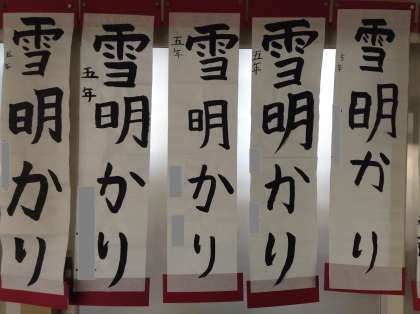 雪明かり
五年
雪明かり
五年
雪明かり
五年
雪明かり
五年
雪明かり
五年